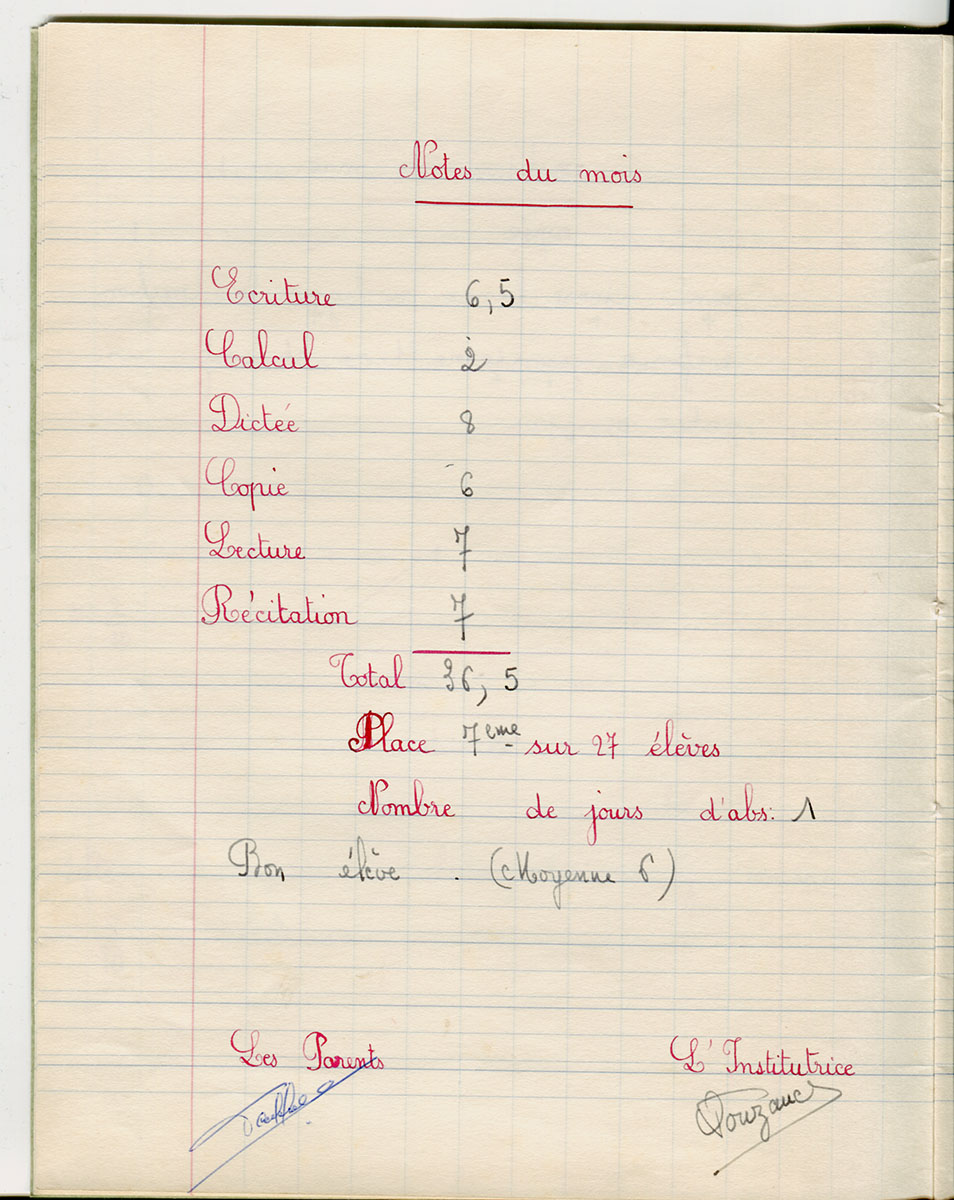 Notes du mois
Ecriture 6,5
Calcul 2
Dictée 8
Copie 6
Lecture 7
Récitation 7
Total 36,5
Place 7eme sur 27 élèves
Nombre de jours d'abs: 1
Bon élève. (Moyenne 6)
Les Parents L'Institutrice